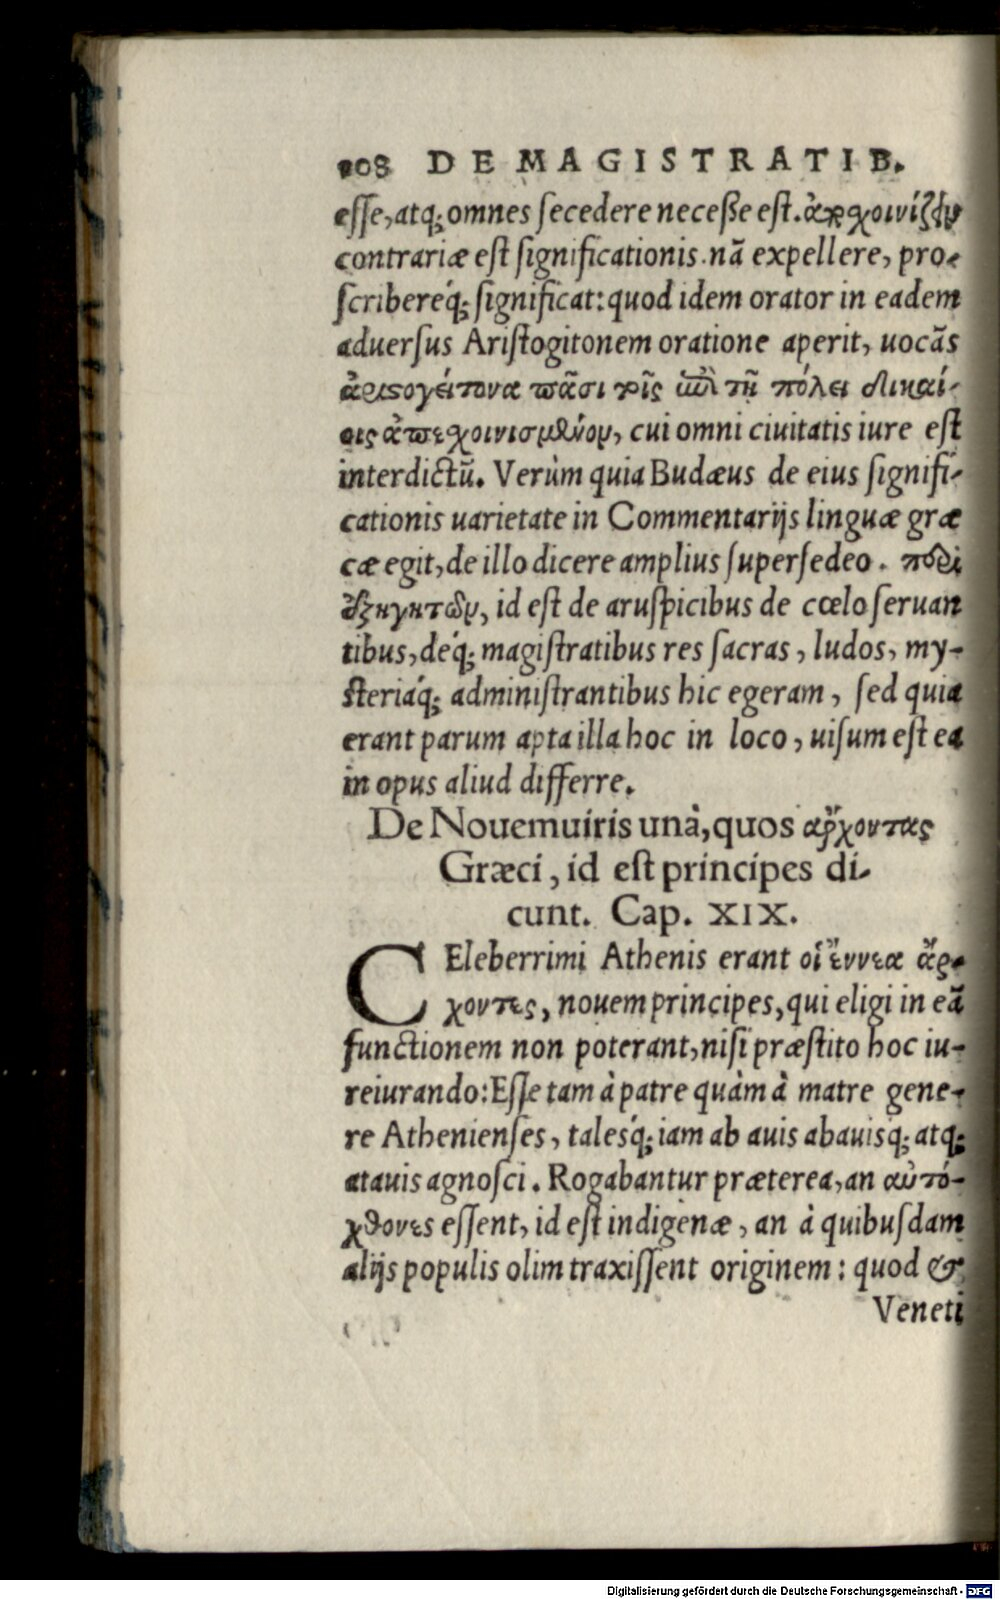 108 DE MAGISTRATIB.
esse, atq; omnes secedere necesse est. ἀποσχοινίζειν
contrariæ est significationis. nã expellere, pro-
scribereq́; significat: quod idem orator in eadem
aduersus Aristogitonem oratione aperit, uocãs
ἀριστογείτονα πᾶσι τοῖς ἐν τῇ πόλει δικαί-
οις ἀπεσχοινισμένον, cui omni ciuitatis iure est
interdictũ. Verùm quia Budæus de eius signifi-
cationis uarietate in Commentarijs linguæ græ
cæ egit, de illo dicere amplius supersedeo. περὶ
ἐξηγητῶν, id est de aruspicibus de cœlo seruan
tibus, deq́; magistratibus res sacras, ludos, my-
steriaq́; administrantibus hic egeram, sed quia
erant parum apta illa hoc in loco, uisum est ea
in opus aliud differre.
De Nouemuiris unà, quos ἄρχοντας
Græci, id est principes di-
cunt. Cap. XIX.
CEleberrimi Athenis erant οἱ ἔννεα ἄρ-
χοντες, nouem principes, qui eligi in eã
functionem non poterant, nisi præstito hoc iu-
reiurando: Esse tam à patre quàm à matre gene-
re Athenienses, talesq́; iam ab auis abauisq; atq;
atauis agnosci. Rogabantur præterea, an αὐτό-
χθονες essent, id est indigenæ, an à quibusdam
alijs populis olim traxissent originem: quod &
Veneti
Digitalisierung gefördert durch die Deutsche Forschungsgemeinschaft - DFG